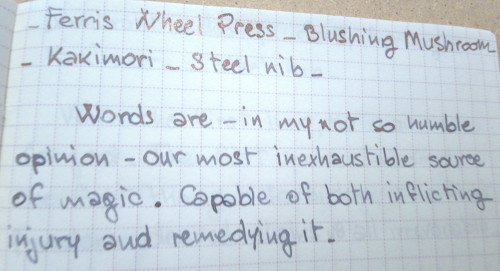 - Ferris Wheel Press - Blushing Mushroom -
- Kakimori - Steel nib -
Words are - in my not so humble
opinion - our most inexhaustible source
of magic. Capable of both inflicting
injury and remedying it.